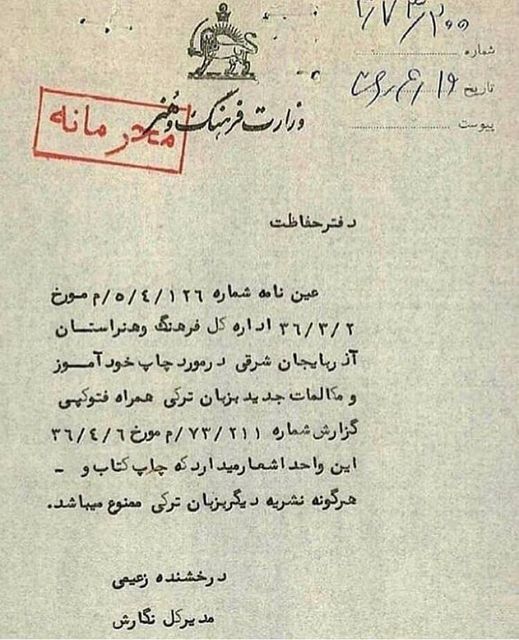 ۲/۷۳/۲۰۰
شماره
تاریخ
پیوست
وزارت فرهنگ و هنر
محرمانه
دفتر حفاظت
عین نامه شماره ۵/۴/۱۲۶/م مورخ
۳۶/۳/۲ اداره کل فرهنگ و هنر استان
آذربایجان شرقی در مورد چاپ خودآموز
و مکالمات جدید بزبان ترکی همراه فتوکپی
گزارش شماره ۷۳/۲۱۱/م مورخ ۳۶/۴/۶
این واحد اشعار میدارد که چاپ کتاب و -
هرگونه نشریه دیگر بزبان ترکی ممنوع میباشد.
درخشنده زعیمی
مدیر کل نگارش